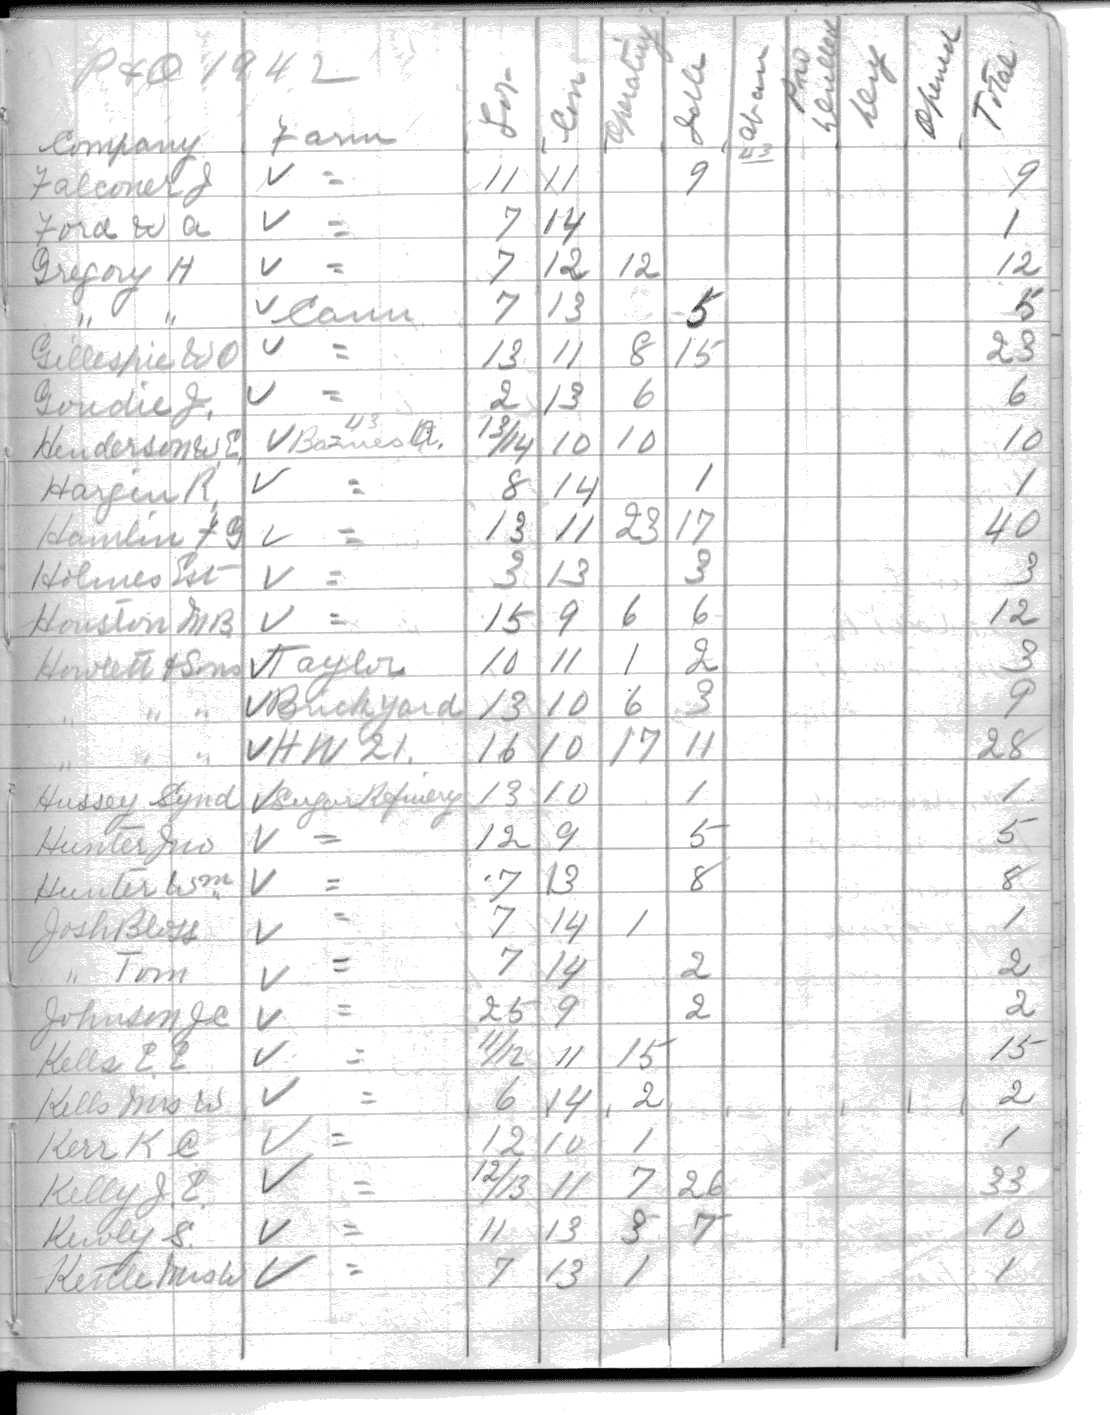 P & O 1942
Company Farm Lot Con Operating Idle Aban 43 Pro Drilled Dry Opened Total
Falconer J ✓ = 11 11 9 9
Ford W A ✓ = 7 14 1
Gregory H ✓ = 7 12 12 12
" " ✓ Cann 7 13 5 5
Gillespie W O ✓ = 13 11 8 15 23
Goudie J. ✓ = 2 13 6 6
Henderson W. E. ✓ Barnes A. 43 13/14 10 10 10
Hargin R. ✓ = 8 14 1 1
Hamlin F G ✓ = 13 11 23 17 40
Holmes Est ✓ = 3 13 3 3
Houston M B ✓ = 15 9 6 6 12
Howlett & Sons ✓ Taylor 10 11 1 2 3
" " " ✓ Brickyard 13 10 6 3 9
" " " ✓ H W 21. 16 10 17 11 28
Hussey Synd ✓ Sugar Refinery 13 10 1 1
Hunter Jno ✓ = 12 9 5 5
Hunter Wm ✓ = 7 13 8 8
Josh Bloss ✓ = 7 14 1 1
" Tom ✓ = 7 14 2 2
Johnson J C ✓ = 25 9 2 2
Kells E E ✓ = 11/12 11 15 15
Kells Mrs W ✓ = 6 14 2 2
Kerr K C ✓ = 12 10 1 1
Kelly J. E. ✓ = 12/13 11 7 26 33
Kewley S. ✓ = 11 13 3 7 10
Kettle Mrs W ✓ = 7 13 1 1